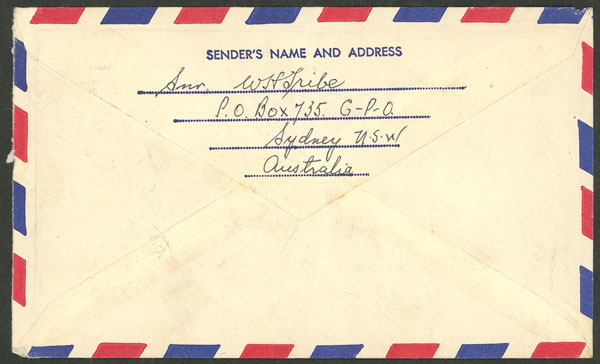 SENDER'S NAME AND ADDRESS
Snr. W H Tribe
P.O. Box 735. G-P-O.
Sydney N.S.W
Australia